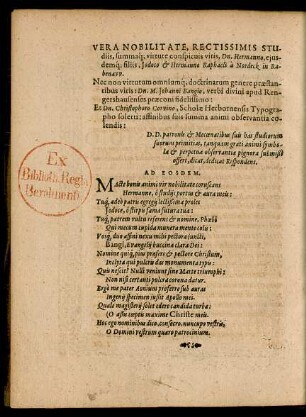 VERA NOBILITATE, RECTISSIMIS STU-
diis, summaq́; virtute conspicuis viris, Dn. Hermanno, ejus-
demq́; filiis, Jodoco & Hermanno
Nec non virtutum omnium q́; doctrinarum genere præstan-
tibus viris: Dn. M. Johanni Bangio, verbi divini apud
præconi fidelissimo:
Et Dn. Christophoro Corvino, Scholæ Herbornensis Typogra-
pho solerti: affinibus suis summa animi observantia co-
lendis:
D. D. patronis & Mœcenatibus suis has studiorum
suorum primitias, tanquam grati animi symbo-
la & perpetuæ observantiæ pignora submissè
offert, dicat, dedicat Respondens.
AD EOSDEM.
Macte bonis animi vir nobilitate coruscans
Hermanne, ô studij portus & aura mei:
Tuq́, adeò patris egregij lectissima proles
Jodoce, ô stirpis fama futura tua:
Tuq́, patrem vultu referens & nomine, Phœbi
Qui mecum cupida munera mente colis:
Vosq́, duo affini nexu mihi pectore juncti,
Bangi, Evangelij buccina clara Dei:
Nomine quiq́, pio prefers & pectore Christum,
Inclyta qui pulcris das monumenta typis:
Quis nescit? Nulli veniunt sine Marte triumphi:
Non nisi certanti pulcra corona datur.
Ergò me pater Aonius proferre sub auras
Ingenij specimen jussit Apollo mei.
Quale magisterij solet edere candida turba:
(O ausis cœptis maxime Christe meis.
Hoc ego nominibus dico, consecro, nuncupo vestris;
O Domini vestrum quæro patrocinium.
Ex
Biblioth. Regia
Berolinensi.